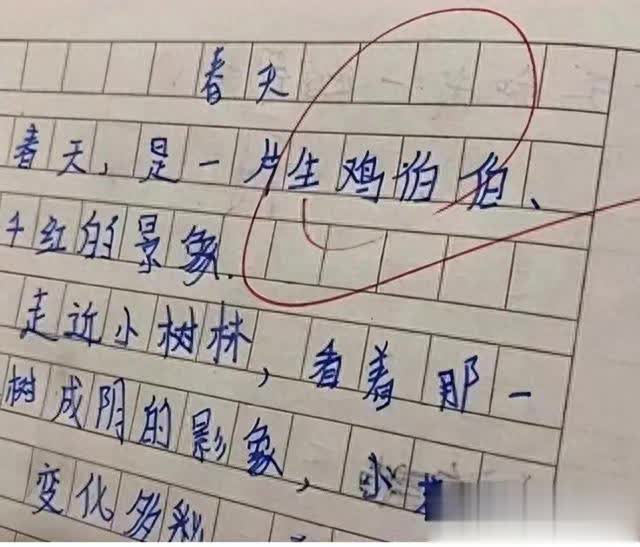 春天
春天,是一片生鸡泊伯、
千红的景象.
走近小树林,看着那一
树成阴的影象,小
变化多